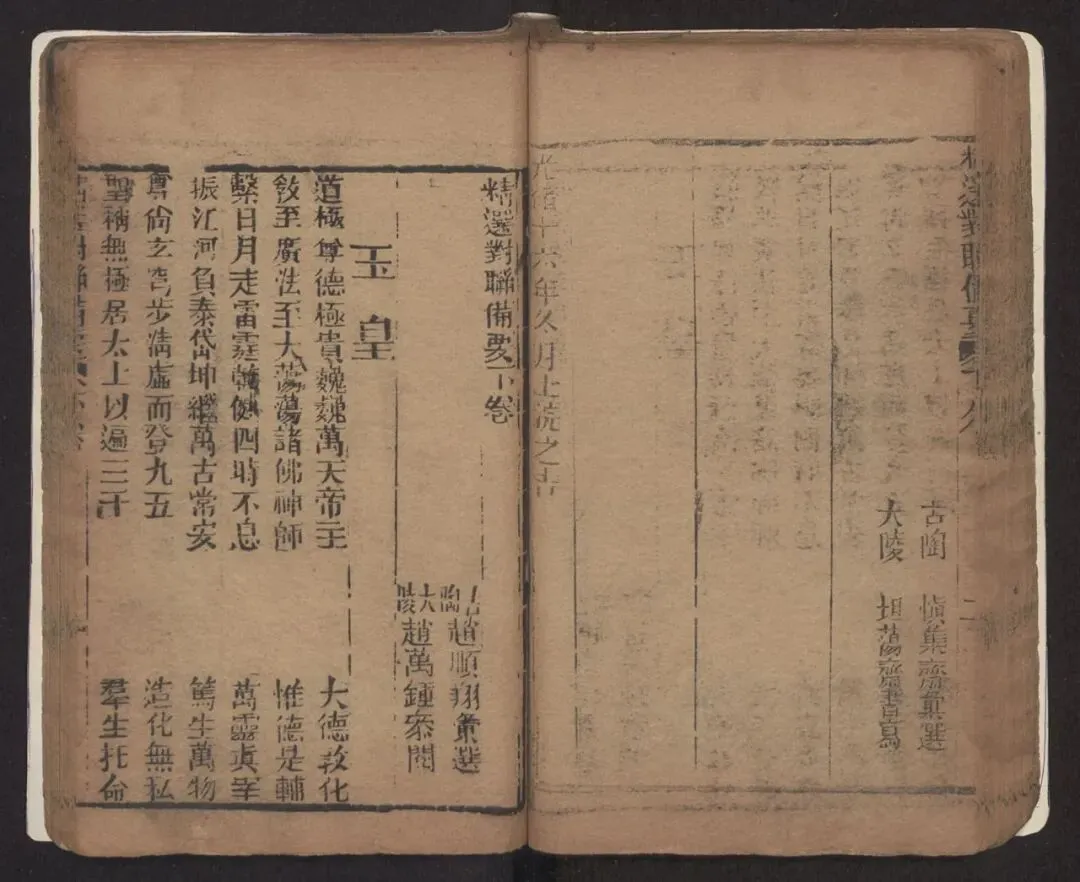 精選對聯備要
古陶 慎集齋彙選
大陵 坦蕩齋書寫
光緒十六年冬月上浣之吉
精選對聯備要下卷
古陶趙順翔彙選
大陵趙萬鍾叅閱
玉皇
道極尊德極貴巍巍萬天帝主 大德敦化
敎至廣法至大蕩蕩諸佛神師 惟德是輔
繫日月走雷霆乾健四時不息 萬靈眞宰
振江河負泰岱坤維萬古常安 篤生萬物
尊尙玄穹步淸虛而登九五 造化無私
聖稱無極居太上以遍三千 羣生托命